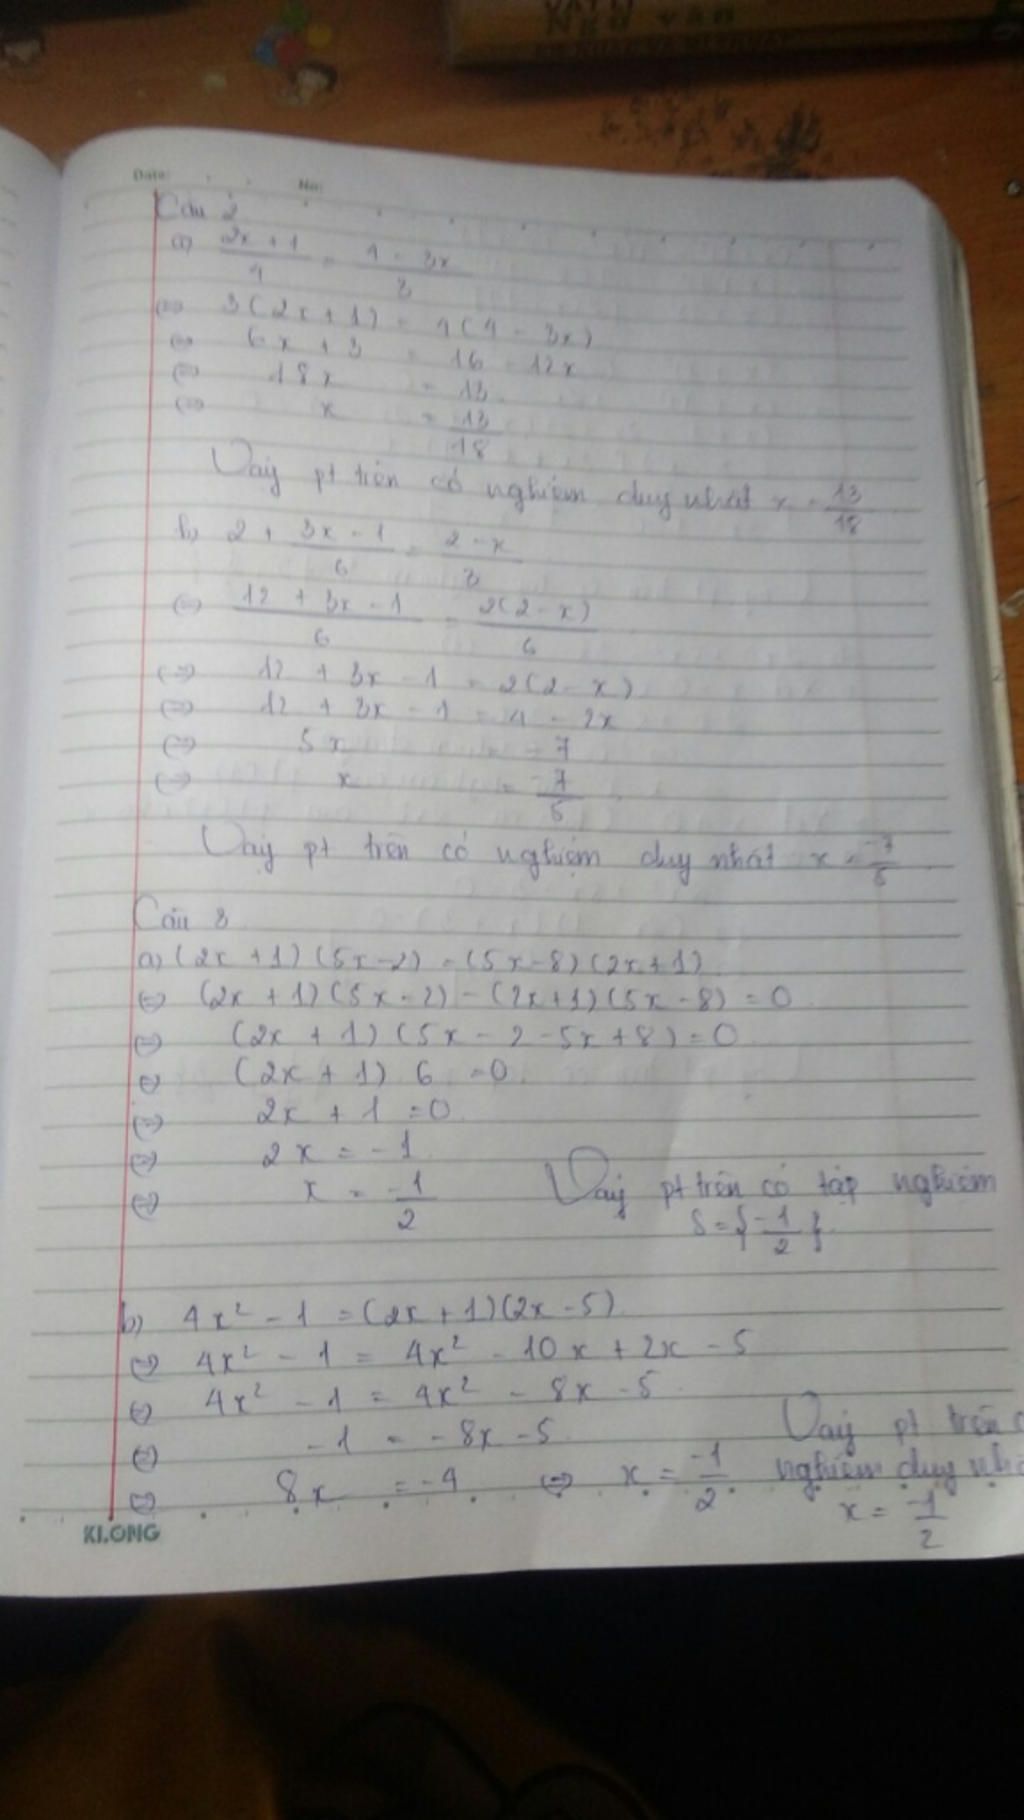 Ngữ văn
Date: No:
Câu 2
a) (2x + 1)/4 = (4 - 3x)/3
⇔ 3(2x + 1) = 4(4 - 3x)
⇔ 6x + 3 = 16 - 12x
⇔ 18x = 13
⇔ x = 13/18
Vậy pt trên có nghiệm duy nhất x = 13/18
b) 2 + (3x - 1)/6 = (2 - x)/3
⇔ (12 + 3x - 1)/6 = 2(2 - x)/6
⇔ 12 + 3x - 1 = 2(2 - x)
⇔ 12 + 3x - 1 = 4 - 2x
⇔ 5x = -7
⇔ x = -7/5
Vậy pt trên có nghiệm duy nhất x = -7/5
Câu 3
a) (2x + 1)(5x - 2) = (5x - 8)(2x + 1)
⇔ (2x + 1)(5x - 2) - (2x + 1)(5x - 8) = 0
⇔ (2x + 1)(5x - 2 - 5x + 8) = 0
⇔ (2x + 1) 6 = 0
⇔ 2x + 1 = 0
⇔ 2x = -1
⇔ x = -1/2
Vậy pt trên có tập nghiệm
S = {-1/2}
b) 4x² - 1 = (2x + 1)(2x - 5)
⇔ 4x² - 1 = 4x² - 10x + 2x - 5
⇔ 4x² - 1 = 4x² - 8x - 5
⇔ -1 = -8x - 5
⇔ 8x = -4 ⇔ x = -1/2
Vậy pt trên
nghiệm duy
x = -1/2
KLONG